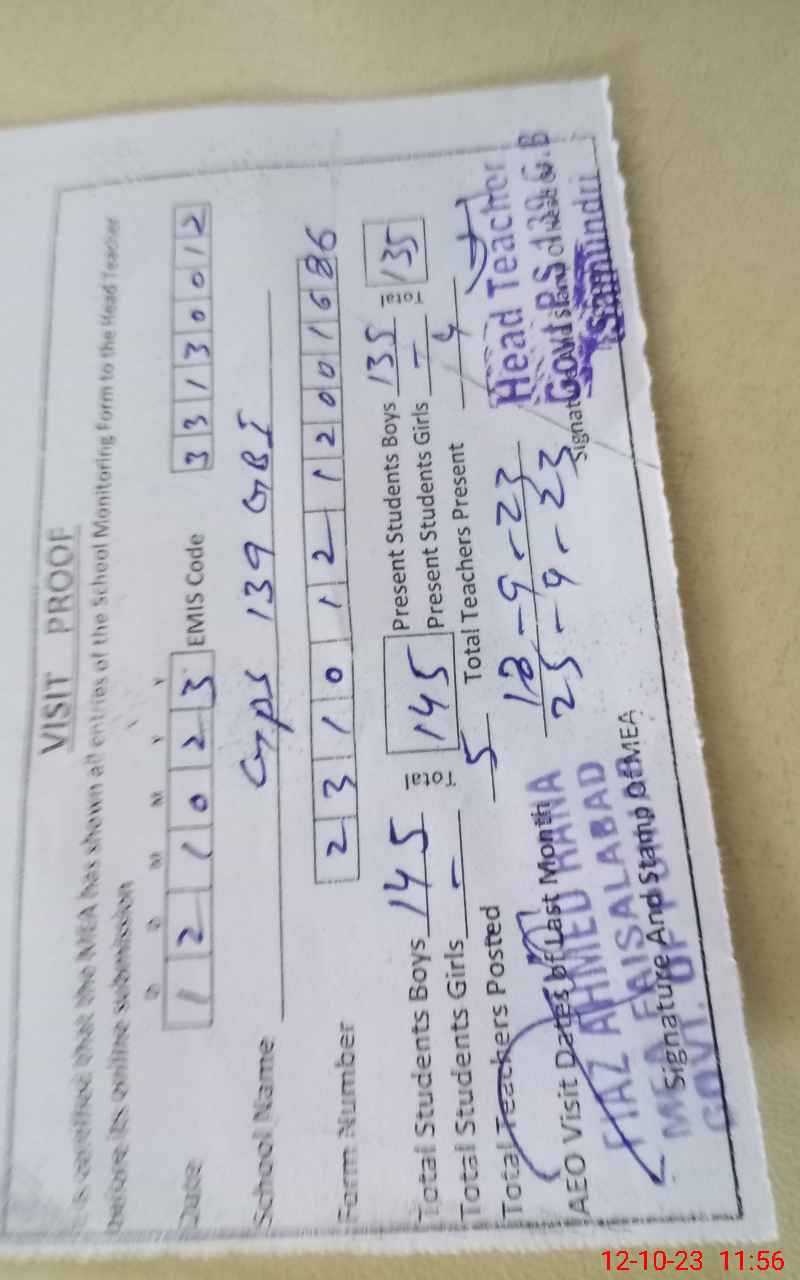 VISIT PROOF
It is certified that the MEA has shown all entries of the School Monitoring Form to the Head Teacher
before its online submission
D D M M Y Y
Date 1 2 1 0 2 3 EMIS Code 3 3 1 3 0 0 1 2
School Name GPS 139 GB I
Form Number 2 3 1 0 1 2 1 2 0 0 1 6 8 6
Total Students Boys 145 Total 145 Present Students Boys 135 Total 135
Total Students Girls - Present Students Girls -
Total Teachers Posted 5 Total Teachers Present 4
AEO Visit Dates of Last Month 18-9-23
25-9-23
Head Teacher
Govt. P.S 139 G.B
Samundri
Signature And Stamp Of Head
FIAZ AHMED RANA
MEA FAISALABAD
GOVT. OF
Signature And Stamp Of MEA
12-10-23 11:56